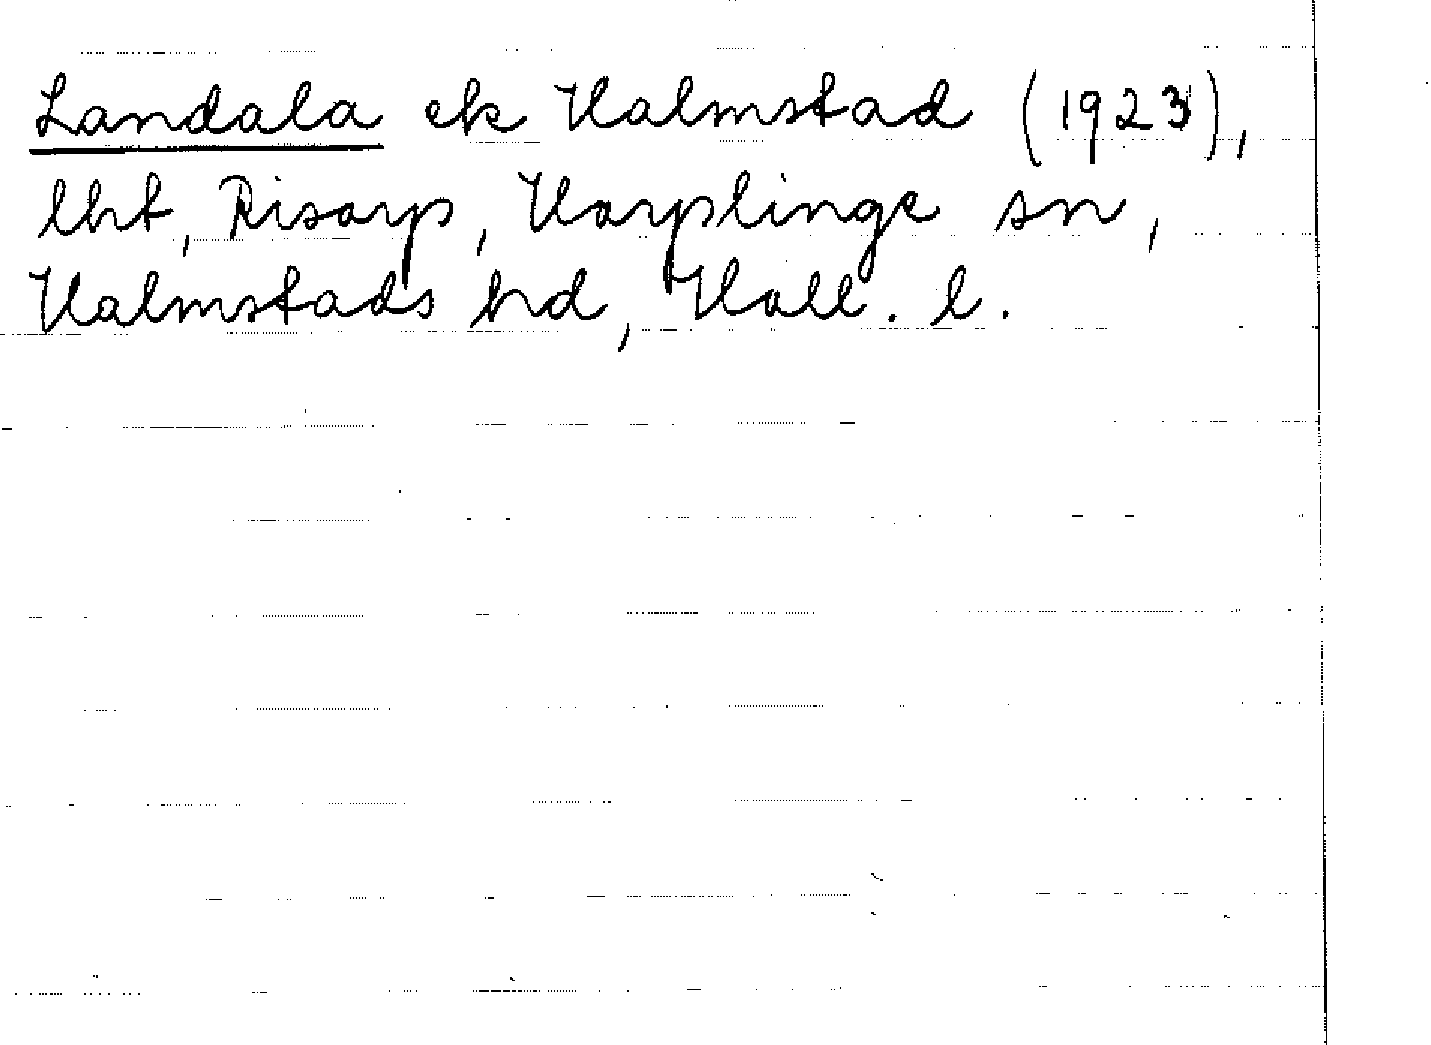 Landala ek Halmstad (1923),
lht, Risarp, Harplinge sn,
Halmstads hd, Hall. l.